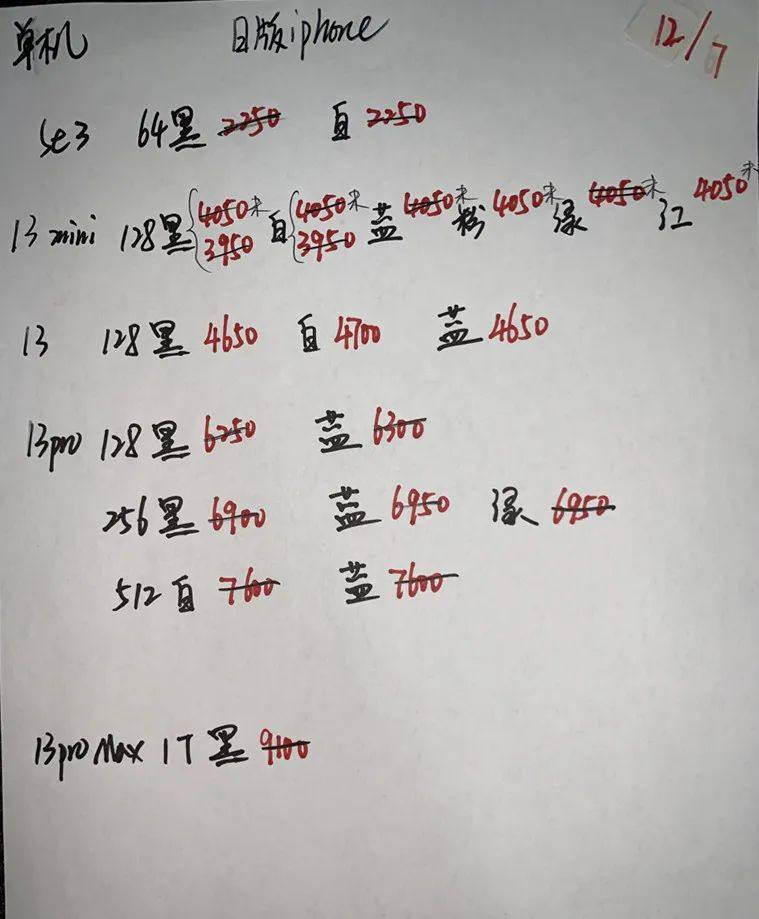 单机 日版iphone 12/7
se3 64黑 2250 白 2250
13 mini 128黑 4050未 3950 白 4050未 3950 蓝 4050未 粉 4050未 绿 4050未 红 4050未
13 128黑 4650 白 4700 蓝 4650
13pro 128黑 6250 蓝 6300
256黑 6900 蓝 6950 绿 6950
512白 7600 蓝 7600
13pro Max 1T 黑 9100